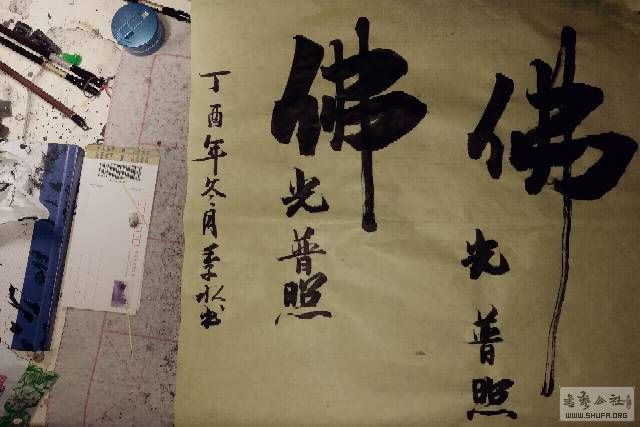 佛
光普照
佛
光普照
丁酉年冬月季水书
書艺公社
WWW.SHUFA.ORG